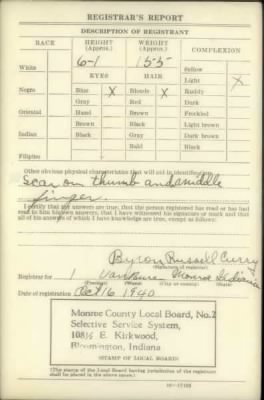 REGISTRAR'S REPORT
DESCRIPTION OF REGISTRANT
RACE HEIGHT (Approx.) WEIGHT (Approx.) COMPLEXION
6-1 155
White Sallow
EYES HAIR Light X
Negro Blue X Blonde X Ruddy
Gray Red Dark
Oriental Hazel Brown Freckled
Brown Black Light brown
Indian Black Gray Dark brown
Bald Black
Filipino
Other obvious physical characteristics that will aid in identification
Scar on thumb and middle
finger.
I certify that my answers are true; that the person registered has read or has had
read to him his own answers; that I have witnessed his signature or mark and that
all of his answers of which I have knowledge are true, except as follows:
Byron Russell Curry
(Signature of registrar)
Registrar for 1 Van Buren Monroe Indiana
(Precinct) (Ward) (City or county) (State)
Date of registration Oct 16 1940
Monroe County Local Board, No. 2
Selective Service System,
108½ E. Kirkwood,
Bloomington, Indiana
STAMP OF LOCAL BOARD
(The stamp of the Local Board having jurisdiction of the registrant
shall be placed in the above space.)